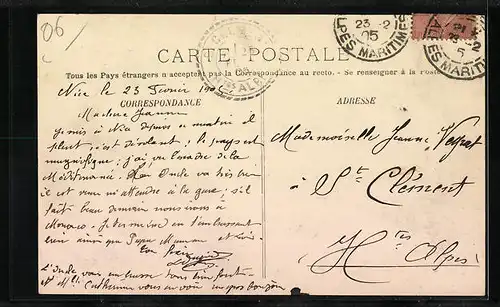 06/
23 -2
05
ALPES MARITIMES
CARTE POSTALE
Tous les Pays étrangers n'acceptent pas la Correspondance au recto. — Se renseigner à la Poste
Nice le 23 Février 190
CORRESPONDANCE
ADRESSE
Ma chere Jeanne
je suis à Nice depuis ce matin il
pleut, c'est désolant; le pays est
magnifique; j'ai vu l'entrée de la
Méditerranée. L'Oncle va très bien
il est venu m'attendre à la gare, s'il
fait beau demain nous irons à
Monaco. Je termine en t'embrassant
bien ainsi que Papa Maman et
ton frère
L'Oncle vous embrasse tous bien fort
et Mlle Catherine vous envoie un gros bonjour
Mademoiselle Jeanne
à St Clément
Htes Alpes